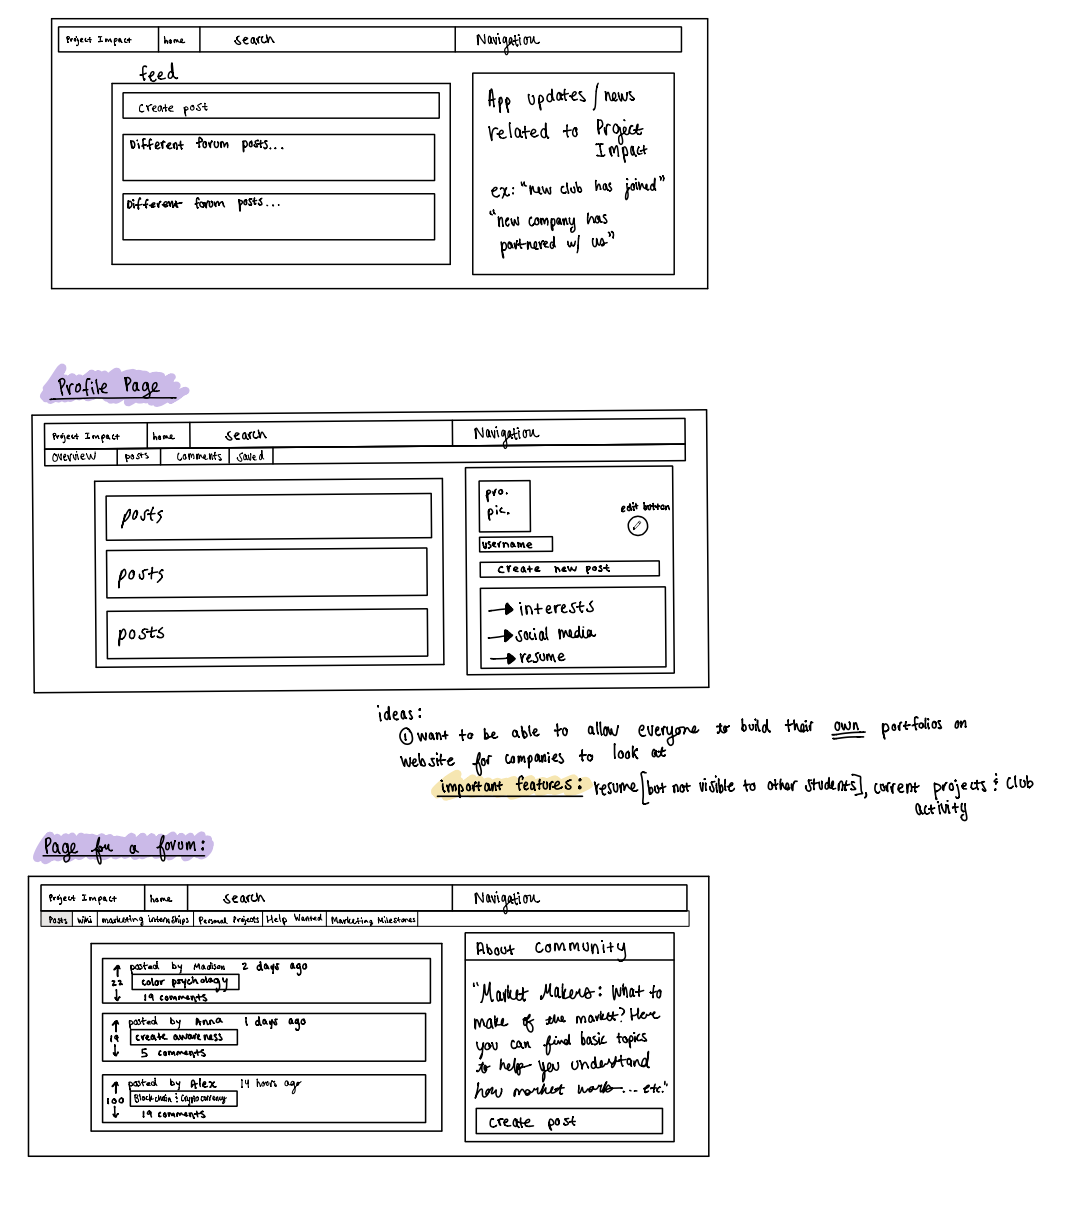 Project Impact home search Navigation
feed
create post
Different forum posts...
Different forum posts...
App updates / news
related to Project
Impact
ex: "new club has joined"
"new company has
partnered w/ us"
Profile Page
Project Impact home search Navigation
overview posts comments saved
posts
posts
posts
pro.
pic.
edit button
username
create new post
→ interests
→ social media
→ resume
ideas:
① want to be able to allow everyone to build their own portfolios on
website for companies to look at
important features: resume [but not visible to other students], current projects & club
activity
Page for a forum:
Project Impact home search Navigation
Posts wiki marketing internships Personal Projects Help Wanted Marketing Milestones
↑ posted by Madison 2 days ago
22 color psychology
↓ 19 comments
↑ posted by Anna 1 days ago
19 create awareness
↓ 5 comments
↑ posted by Alex 14 hours ago
100 Blockchain & Cryptocurrency
↓ 19 comments
About Community
"Market Makers: What to
make of the market? Here
you can find basic topics
to help you understand
how market works... etc."
create post